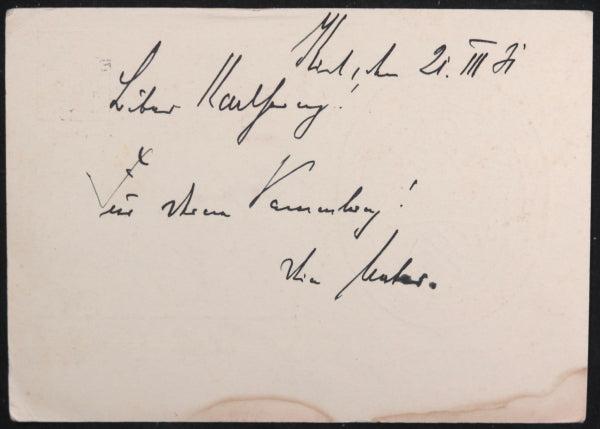 Kiel, den 21. III 31
Lieber Karlheinz!
Für deine Sammlung!
dein Vater.